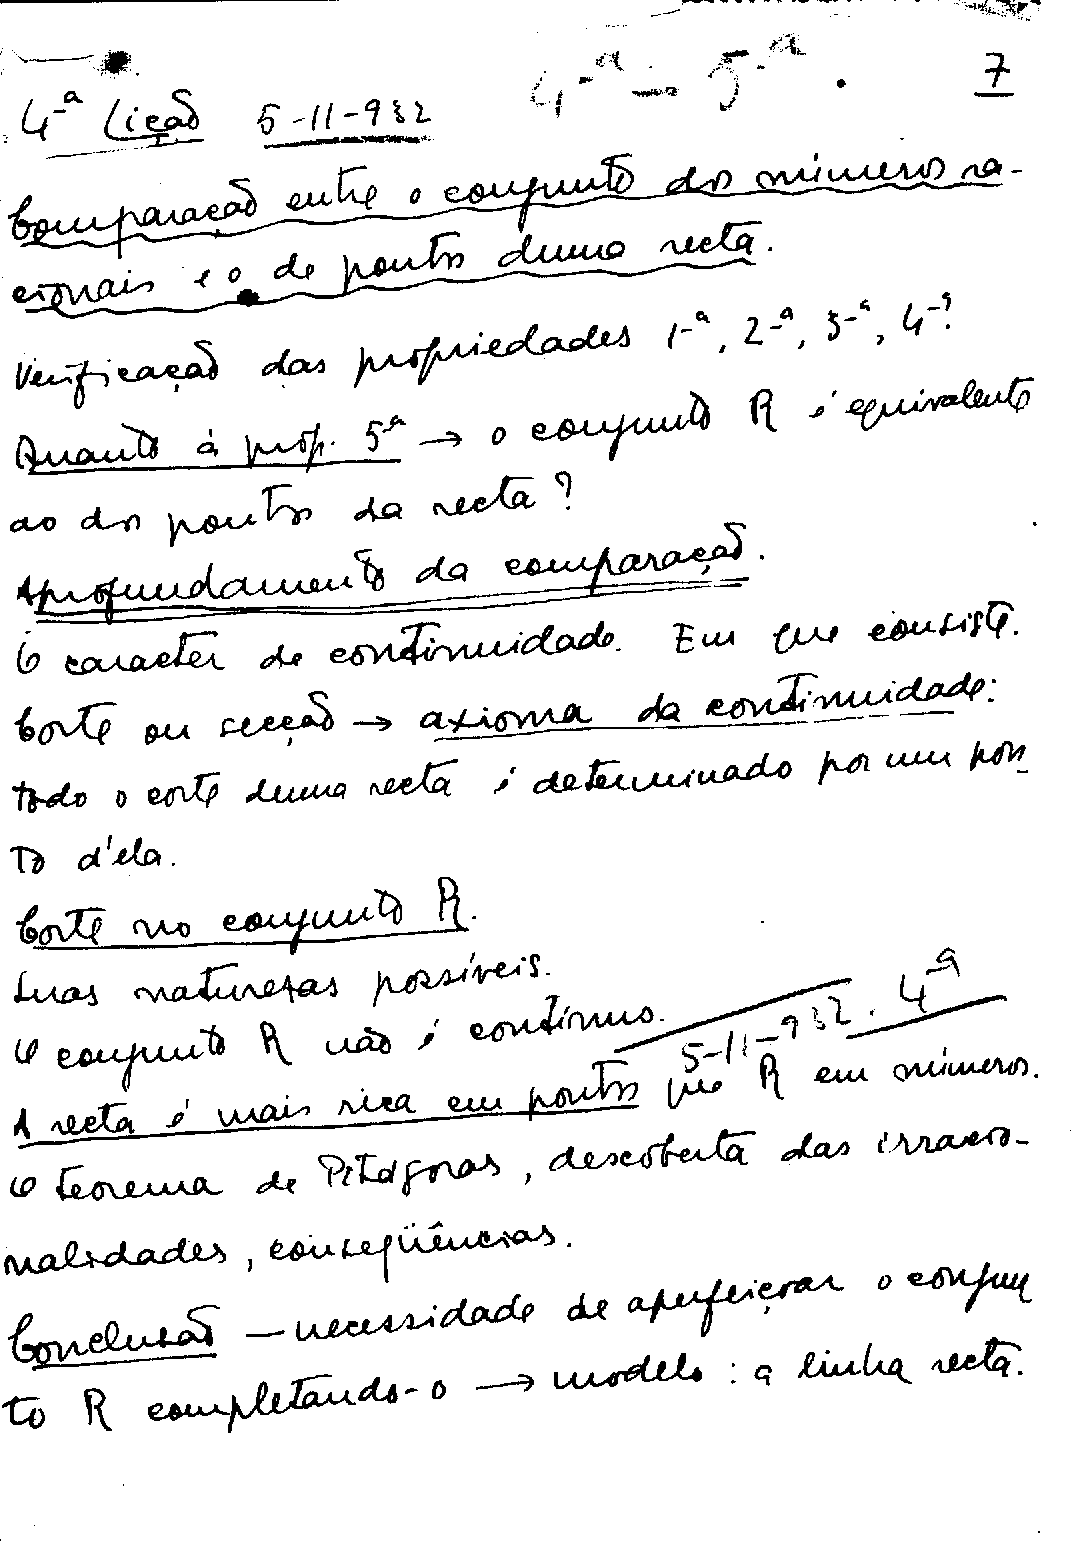 4-ª — 5-ª.
7
4-ª Lição 5-11-932
Comparação entre o conjunto dos números ra-
cionais e o de pontos duma recta.
Verificação das propriedades 1-ª, 2-ª, 3-ª, 4-ª.
Quanto à prop. 5ª → o conjunto R é equivalente
ao dos pontos da recta?
Aprofundamento da comparação.
O caracter de continuidade. Em que consiste.
Corte ou secção → axioma da continuidade:
todo o corte duma recta é determinado por um pon-
to d'ela.
Corte no conjunto R.
Suas naturezas possíveis.
O conjunto R não é contínuo.
5-11-932. 4-ª
A recta é mais rica em pontos que R em números.
O teorema de Pitágoras, descoberta das irracio-
nalidades, conseqüências.
Conclusão — necessidade de aperfeiçoar o conjun
to R completando-o → modelo: a linha recta.